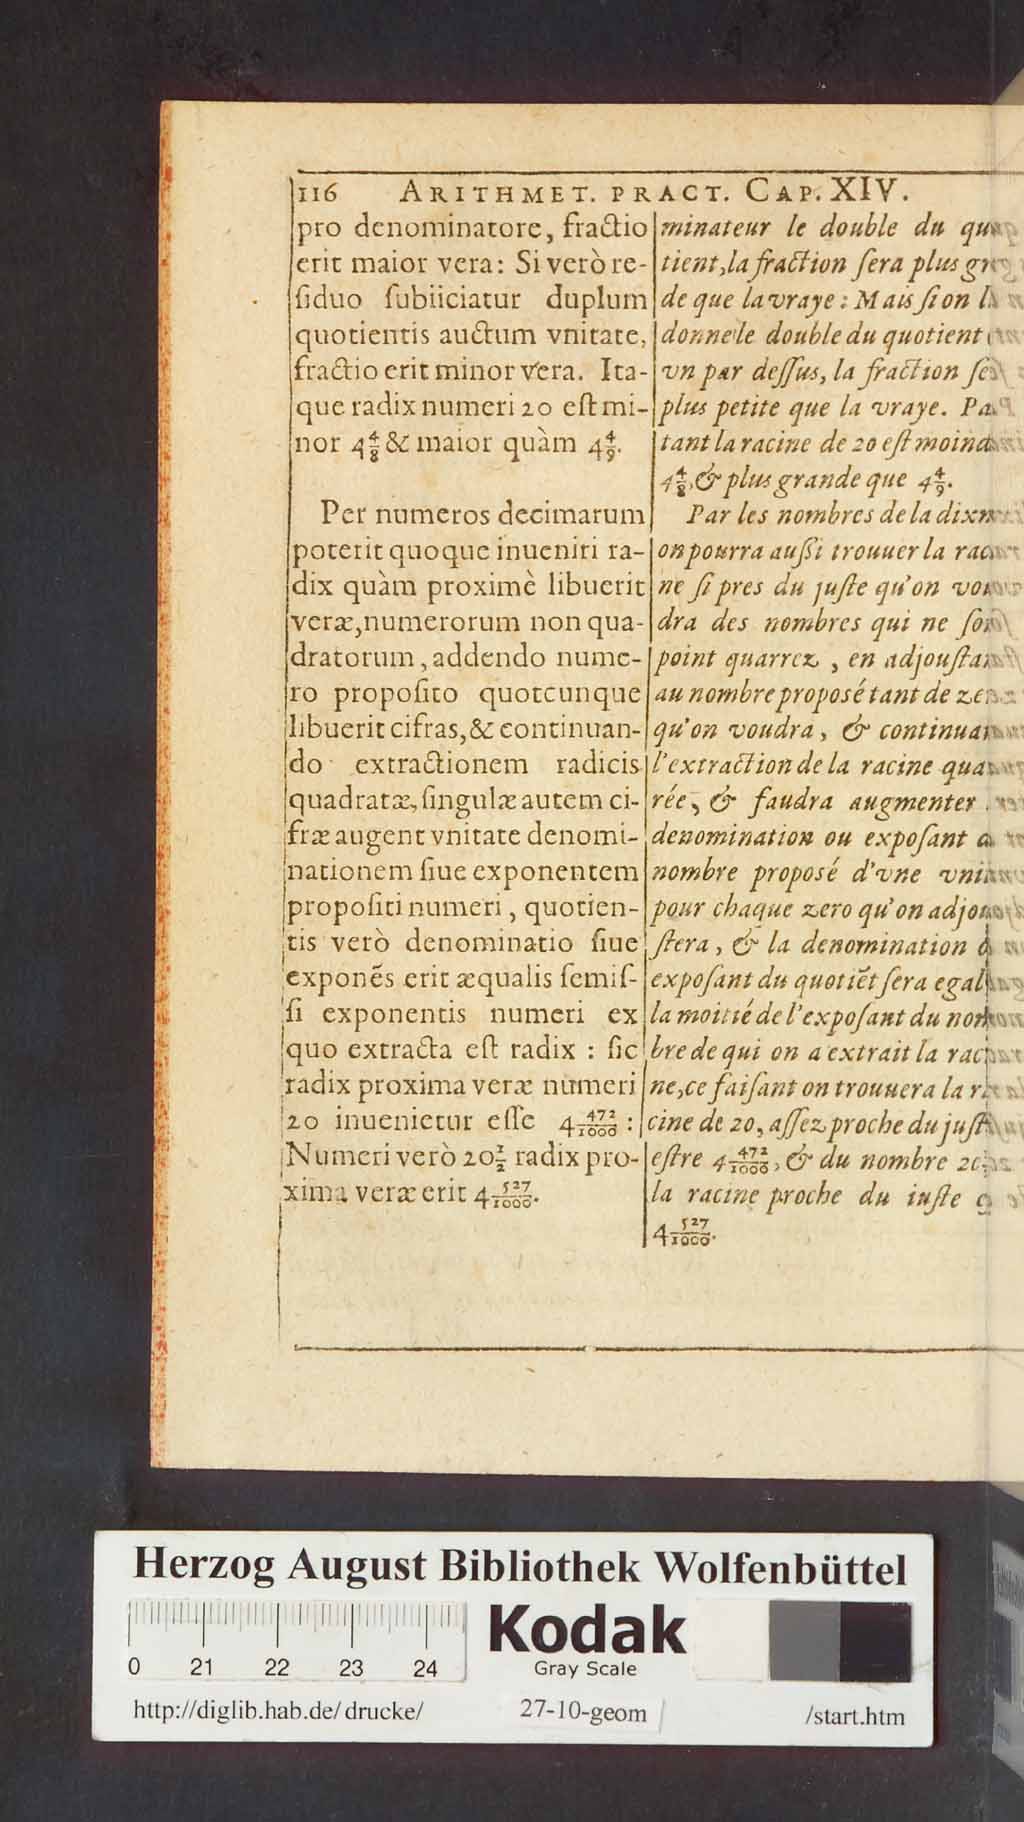 116 ARITHMET. PRACT. CAP. XIV.
pro denominatore, fractio
erit maior vera: Si verò re-
ſiduo ſubiiciatur duplum
quotientis auctum vnitate,
fractio erit minor vera. Ita-
que radix numeri 20 eſt mi-
nor 4 4/8 & maior quàm 4 4/9.
Per numeros decimarum
poterit quoque inueniri ra-
dix quàm proximè libuerit
veræ, numerorum non qua-
dratorum, addendo nume-
ro propoſito quotcunque
libuerit cifras, & continuan-
do extractionem radicis
quadratæ, ſingulæ autem ci-
fræ augent vnitate denomi-
nationem ſiue exponentem
propoſiti numeri, quotien-
tis verò denominatio ſiue
exponẽs erit æqualis ſemiſ-
ſi exponentis numeri ex
quo extracta eſt radix : ſic
radix proxima veræ numeri
20 inuenietur eſſe 4 472/1000 :
Numeri verò 20 1/2 radix pro-
xima veræ erit 4 527/1000.
minateur le double du quo
tient, la fraction ſera plus gr
de que la vraye : Mais ſi on l
donne le double du quotient
vn par deſſus, la fraction ſe
plus petite que la vraye. Pa
tant la racine de 20 eſt moind
4 4/8, & plus grande que 4 4/9.
Par les nombres de la dixm
on pourra auſſi trouuer la rac
ne ſi pres du juſte qu'on vou
dra des nombres qui ne ſo
point quarrez, en adjouſtan
au nombre propoſé tant de ze
qu'on voudra, & continuan
l'extraction de la racine qua
rée, & faudra augmenter
denomination ou expoſant
nombre propoſé d'vne vni
pour chaque zero qu'on adjou
ſtera, & la denomination
expoſant du quotiẽt ſera egal
la moitié de l'expoſant du nom
bre de qui on a extrait la rac
ne, ce faiſant on trouuera la r
cine de 20, aſſez proche du juſt
eſtre 4 472/1000, & du nombre 20
la racine proche du iuſte
4 527/1000.
Herzog August Bibliothek Wolfenbüttel
0 21 22 23 24
Kodak
Gray Scale
http://diglib.hab.de/drucke/ 27-10-geom /start.htm